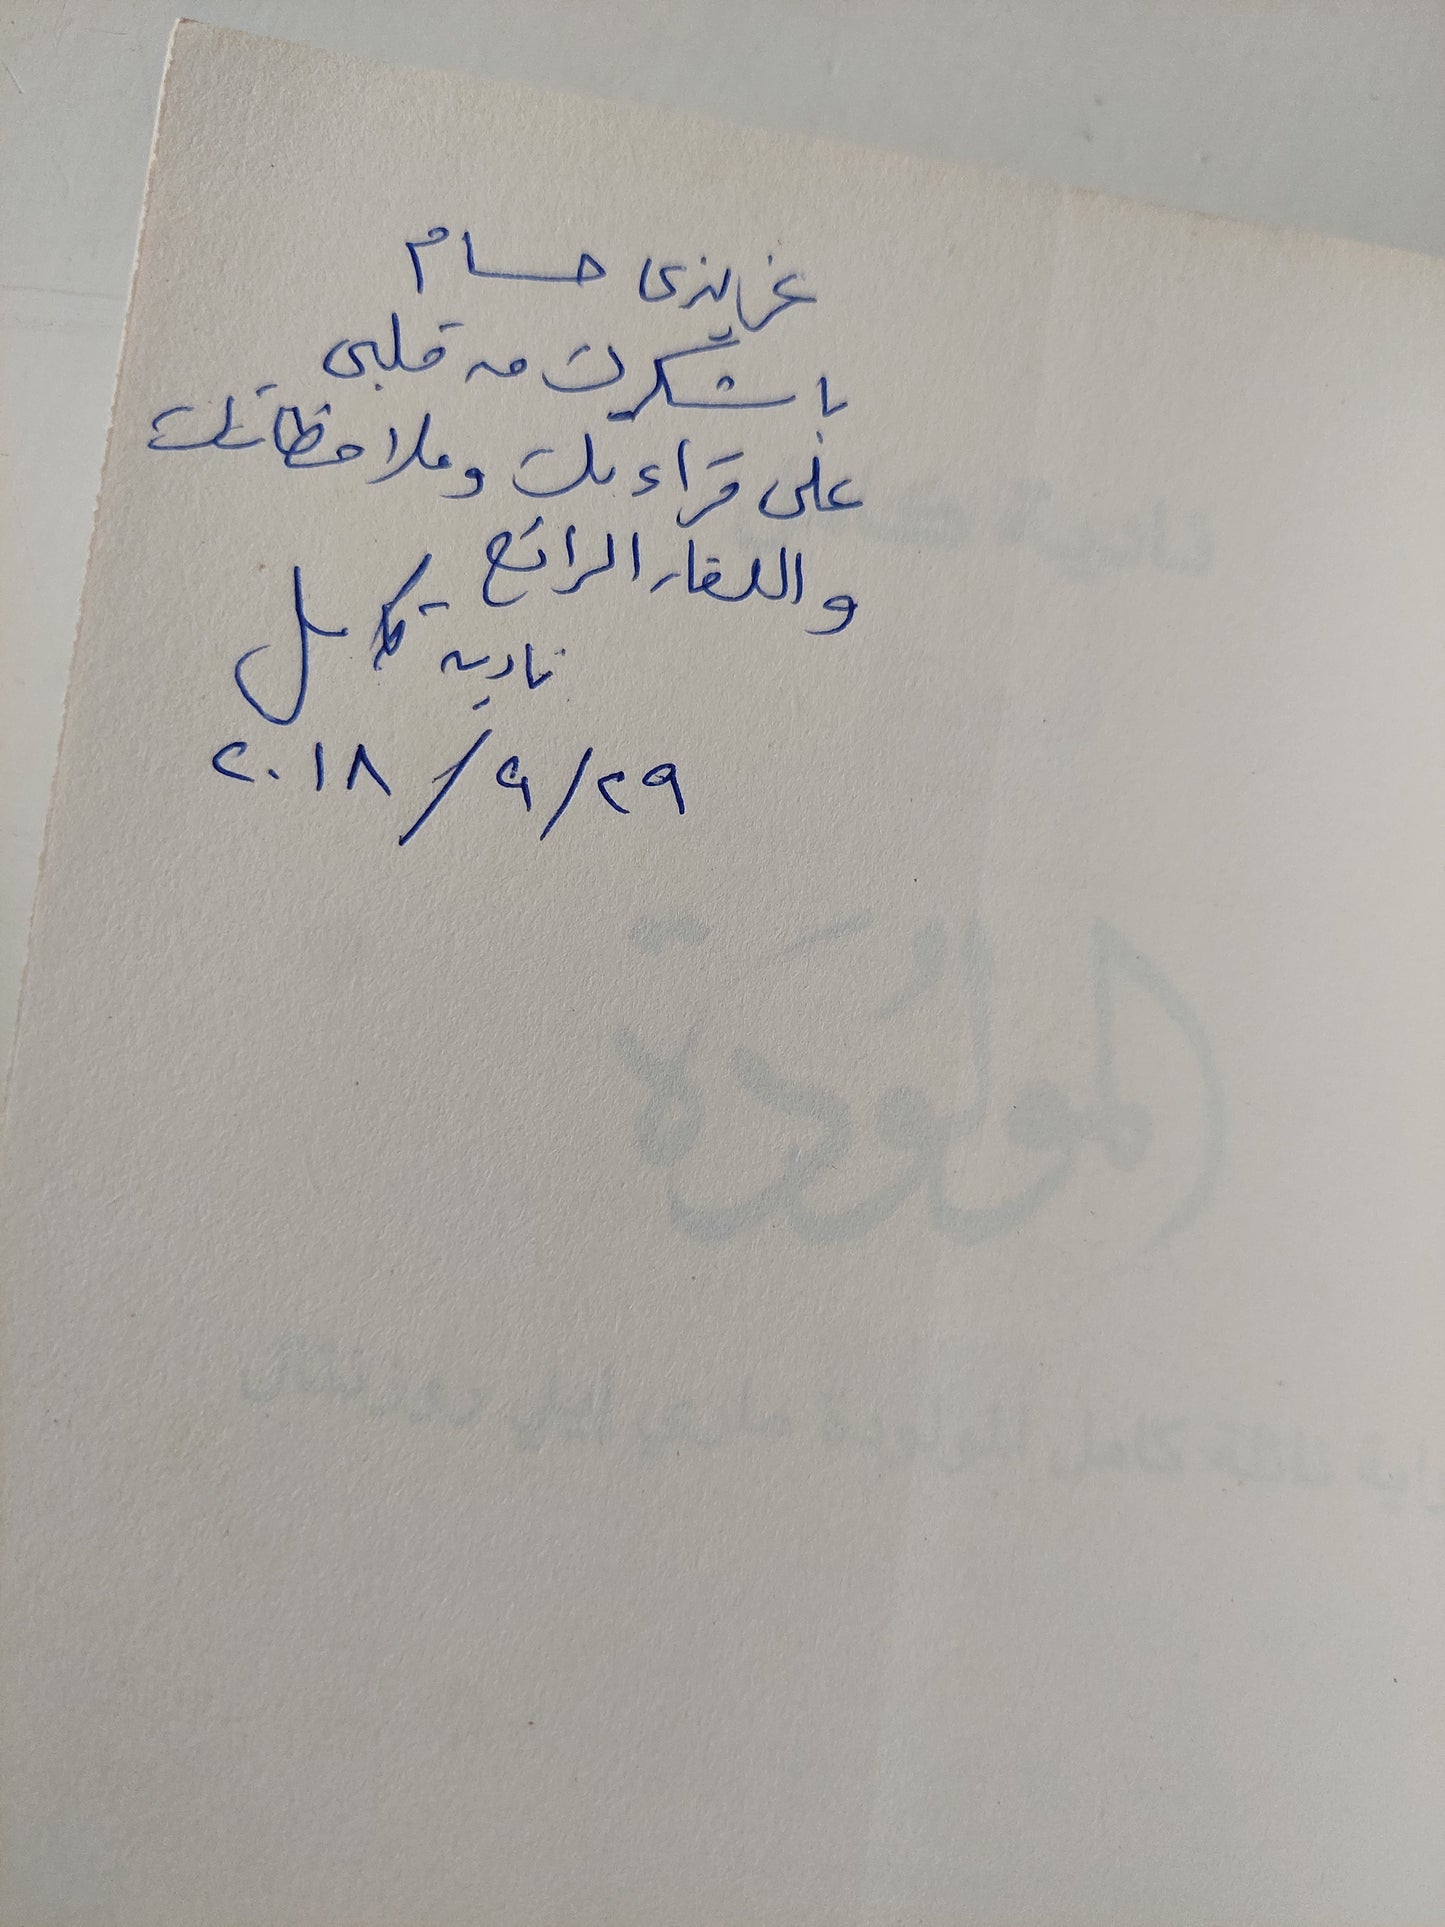 عزيزى حسام
باشكرك من قلبى
على قراءتك وملاحظاتك
واللقاء الرائع
نادية كامل
٢٩/٩/٢٠١٨
المولودة